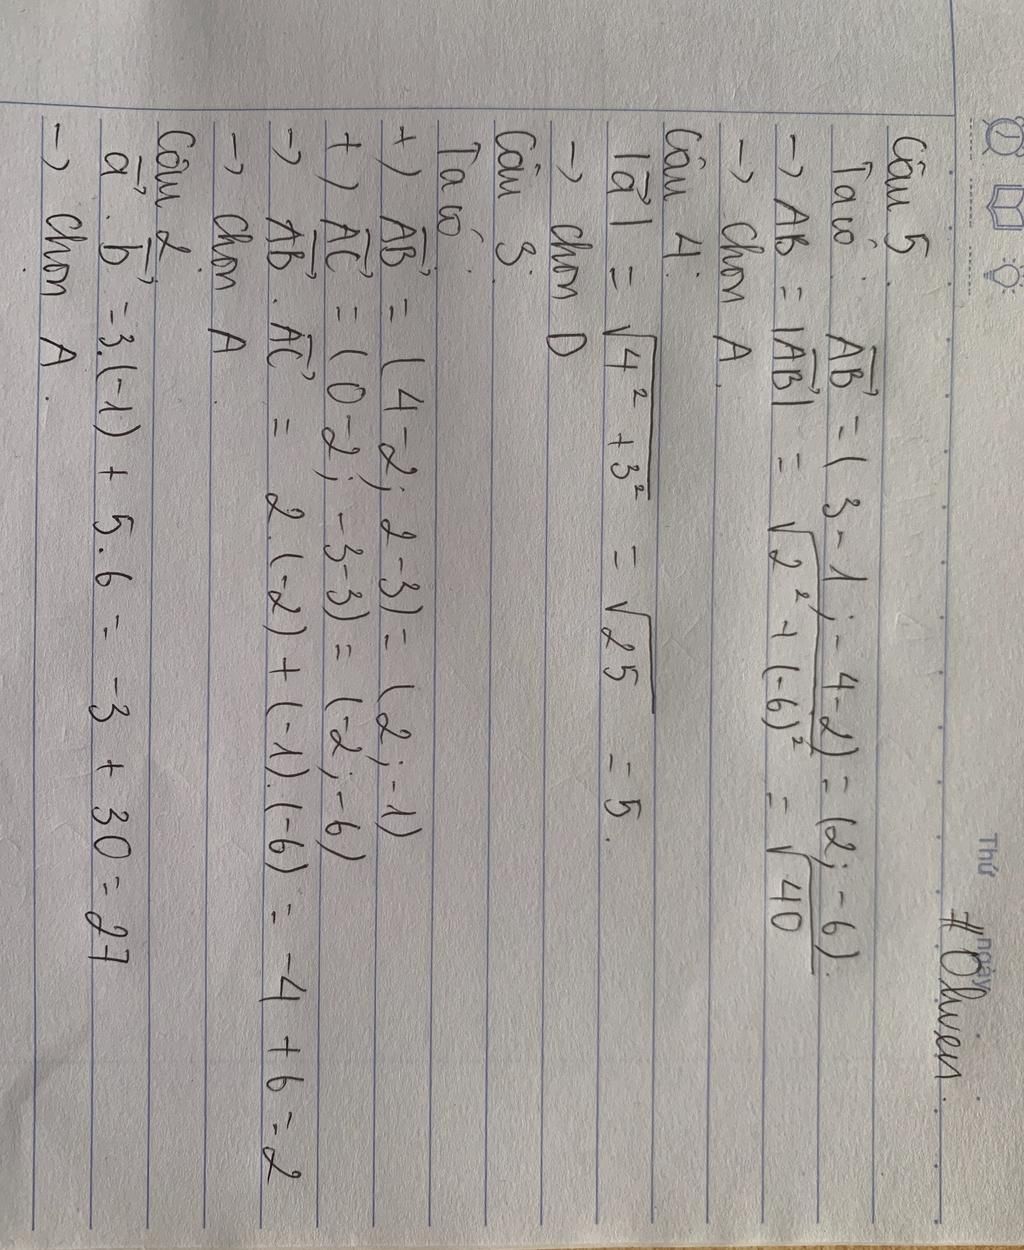 Thứ
ngày
#Ohuyen.
Câu 5.
Ta có: \overrightarrow{AB} = (3-1; -4-2) = (2; -6).
→ AB = |\overrightarrow{AB}| = √(2² + (-6)²) = √40
→ Chọn A.
Câu 4.
|\vec{a}| = √(4² + 3²) = √25 = 5.
→ Chọn D
Câu 3.
Ta có:
+) \overrightarrow{AB} = (4-2; 2-3) = (2; -1)
+) \overrightarrow{AC} = (0-2; -3-3) = (-2; -6)
→ \overrightarrow{AB} . \overrightarrow{AC} = 2.(-2) + (-1).(-6) = -4 + 6 = 2
→ Chọn A.
Câu 2.
\vec{a} . \vec{b} = 3.(-1) + 5.6 = -3 + 30 = 27
→ Chọn A.